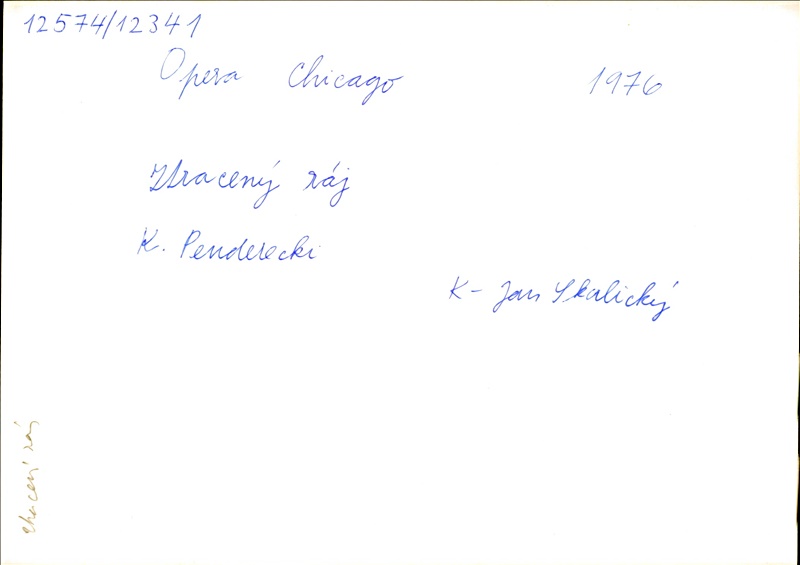 12574/12341
Opera Chicago 1976
Ztracený ráj
K. Penderecki
K - Jan Skalický
ztracený ráj